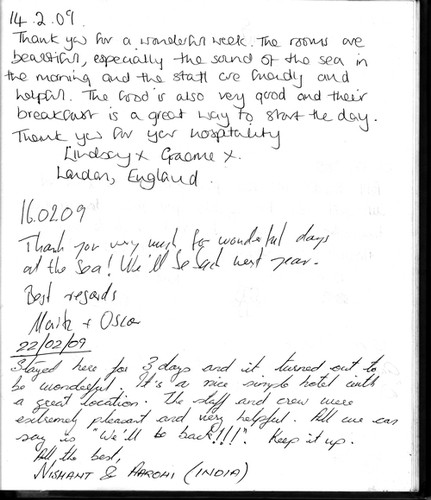 14.2.09.
Thank you for a wonderful week. The rooms are
beautiful, especially the sound of the sea in
the morning and the staff are friendly and
helpful. The food is also very good and their
breakfast is a great way to start the day.
Thank you for your hospitality
Lindsay x Graeme x.
London, England.
16.02.09
Thank you very much for wonderful days
at the sea! We'll be back next year.
Best regards
+ Oscar
22/02/09
Stayed here for 3 days and it turned out to
be wonderful. It's a nice simple hotel with
a great location. The staff and crew were
extremely pleasant and very helpful. All we can
say is "We'll be back!!!". Keep it up.
All the best,
NISHANT & AAROHI (INDIA)